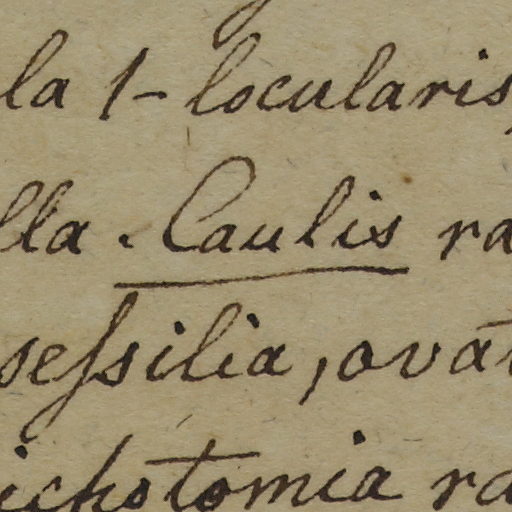 la 1-locularis,
lla. Caulis ra
seſsilia, ovat
ichotomia ra